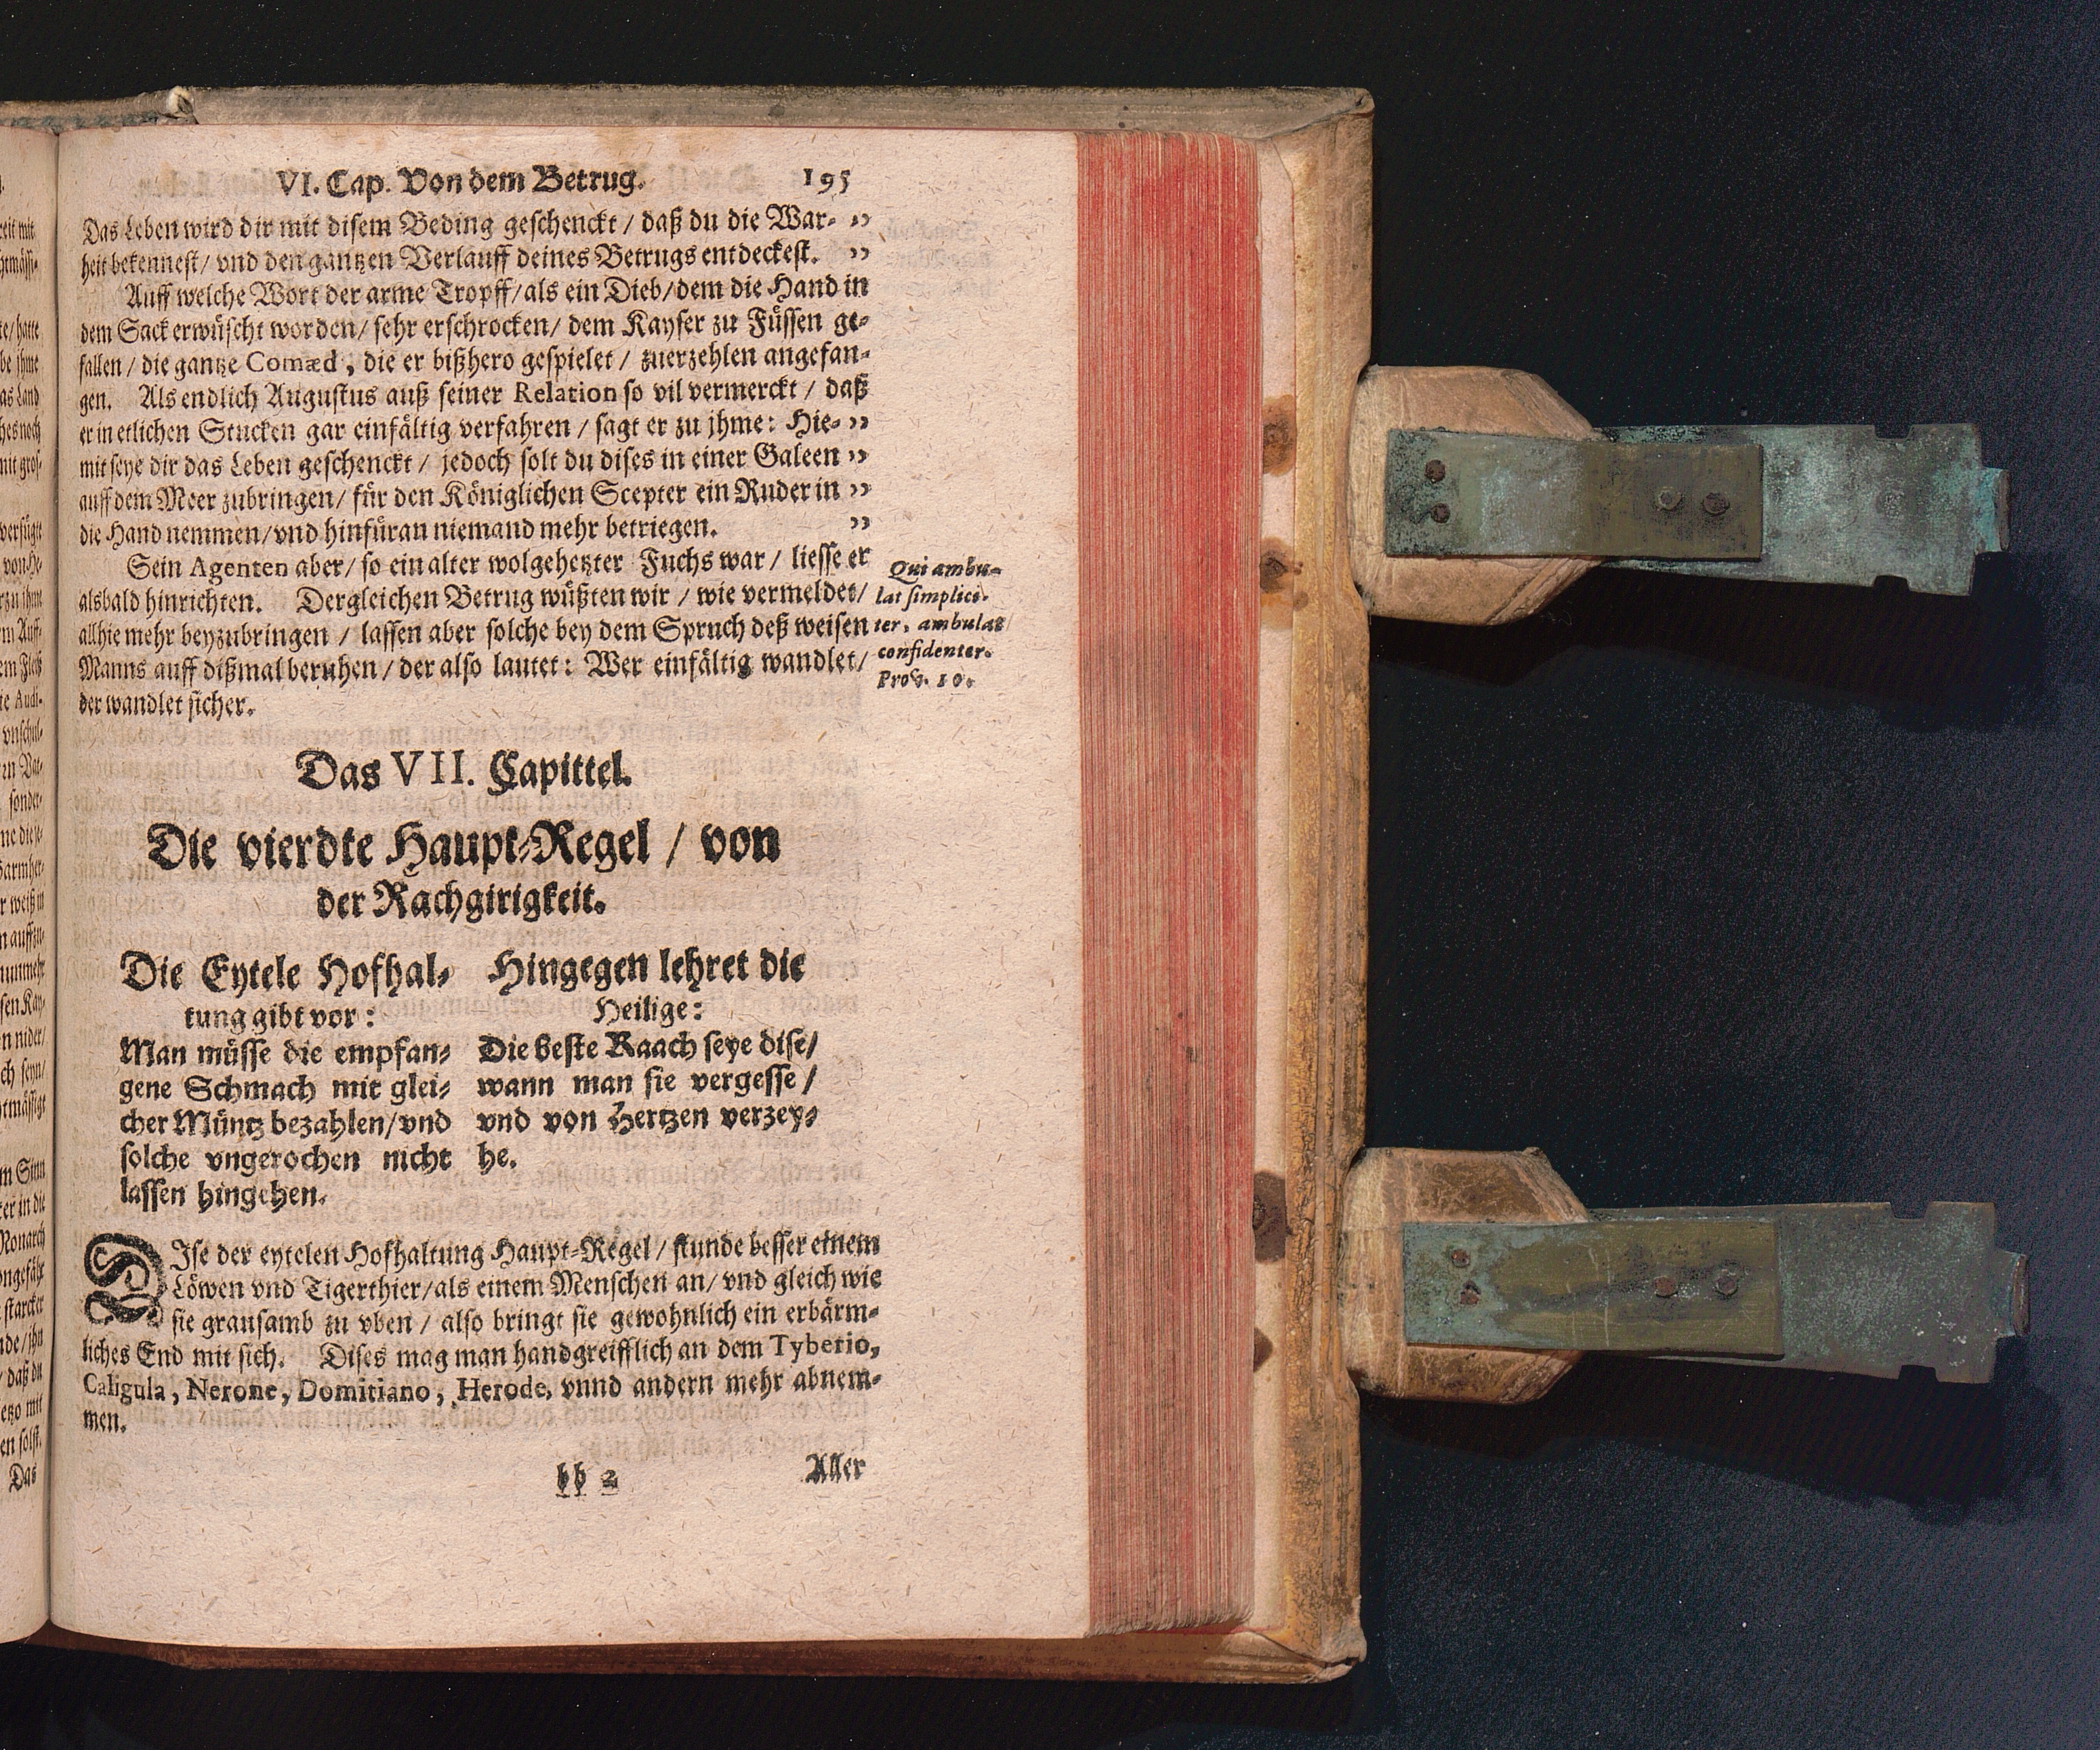 VI. Cap. Von dem Betrug. 195
Das Leben wird dir mit disem Beding geschenckt / daß du die War- ”
heit bekennest / vnd den gantzen Verlauff deines Betrugs entdeckest. ”
Auff welche Wort der arme Tropff / als ein Dieb / dem die Hand in
dem Sack erwüscht worden / sehr erschrocken / dem Kayser zu Füssen ge-
fallen / die gantze Comæd, die er bißhero gespielet / zuerzehlen angefan-
gen. Als endlich Augustus auß seiner Relation so vil vermerckt / daß
er in etlichen Stucken gar einfältig verfahren / sagt er zu jhme: Hie- ”
mit seye dir das Leben geschenckt / jedoch solt du dises in einer Galeen ”
auff dem Meer zubringen / für den Königlichen Scepter ein Ruder in ”
die Hand nemmen / vnd hinfüran niemand mehr betriegen. ”
Sein Agenten aber / so ein alter wolgehetzter Fuchs war / liesse er
alsbald hinrichten. Dergleichen Betrug wüßten wir / wie vermeldet /
allhie mehr beyzubringen / lassen aber solche bey dem Spruch deß weisen
Manns auff dißmal beruhen / der also lautet: Wer einfältig wandlet /
der wandlet sicher.
Qui ambu-
lat simplici-
ter, ambulat
confidenter.
Prov. 10.
Das VII. Capittel.
Die vierdte Haupt-Regel / von
der Rachgirigkeit.
Die Eytele Hofhal-
tung gibt vor:
Man müsse die empfan-
gene Schmach mit glei-
cher Müntz bezahlen / vnd
solche vngerochen nicht
lassen hingehen.
Hingegen lehret die
Heilige:
Die beste Raach seye dise /
wann man sie vergesse /
vnd von Hertzen verzey-
he.
DIse der eytelen Hofhaltung Haupt-Regel / stunde besser einem
Löwen vnd Tigerthier / als einem Menschen an / vnd gleich wie
sie grausamb zu vben / also bringt sie gewohnlich ein erbärm-
liches End mit sich. Dises mag man handgreifflich an dem Tyberio,
Caligula, Nerone, Domitiano, Herode, vnnd andern mehr abnem-
men.
bb 2 Aller